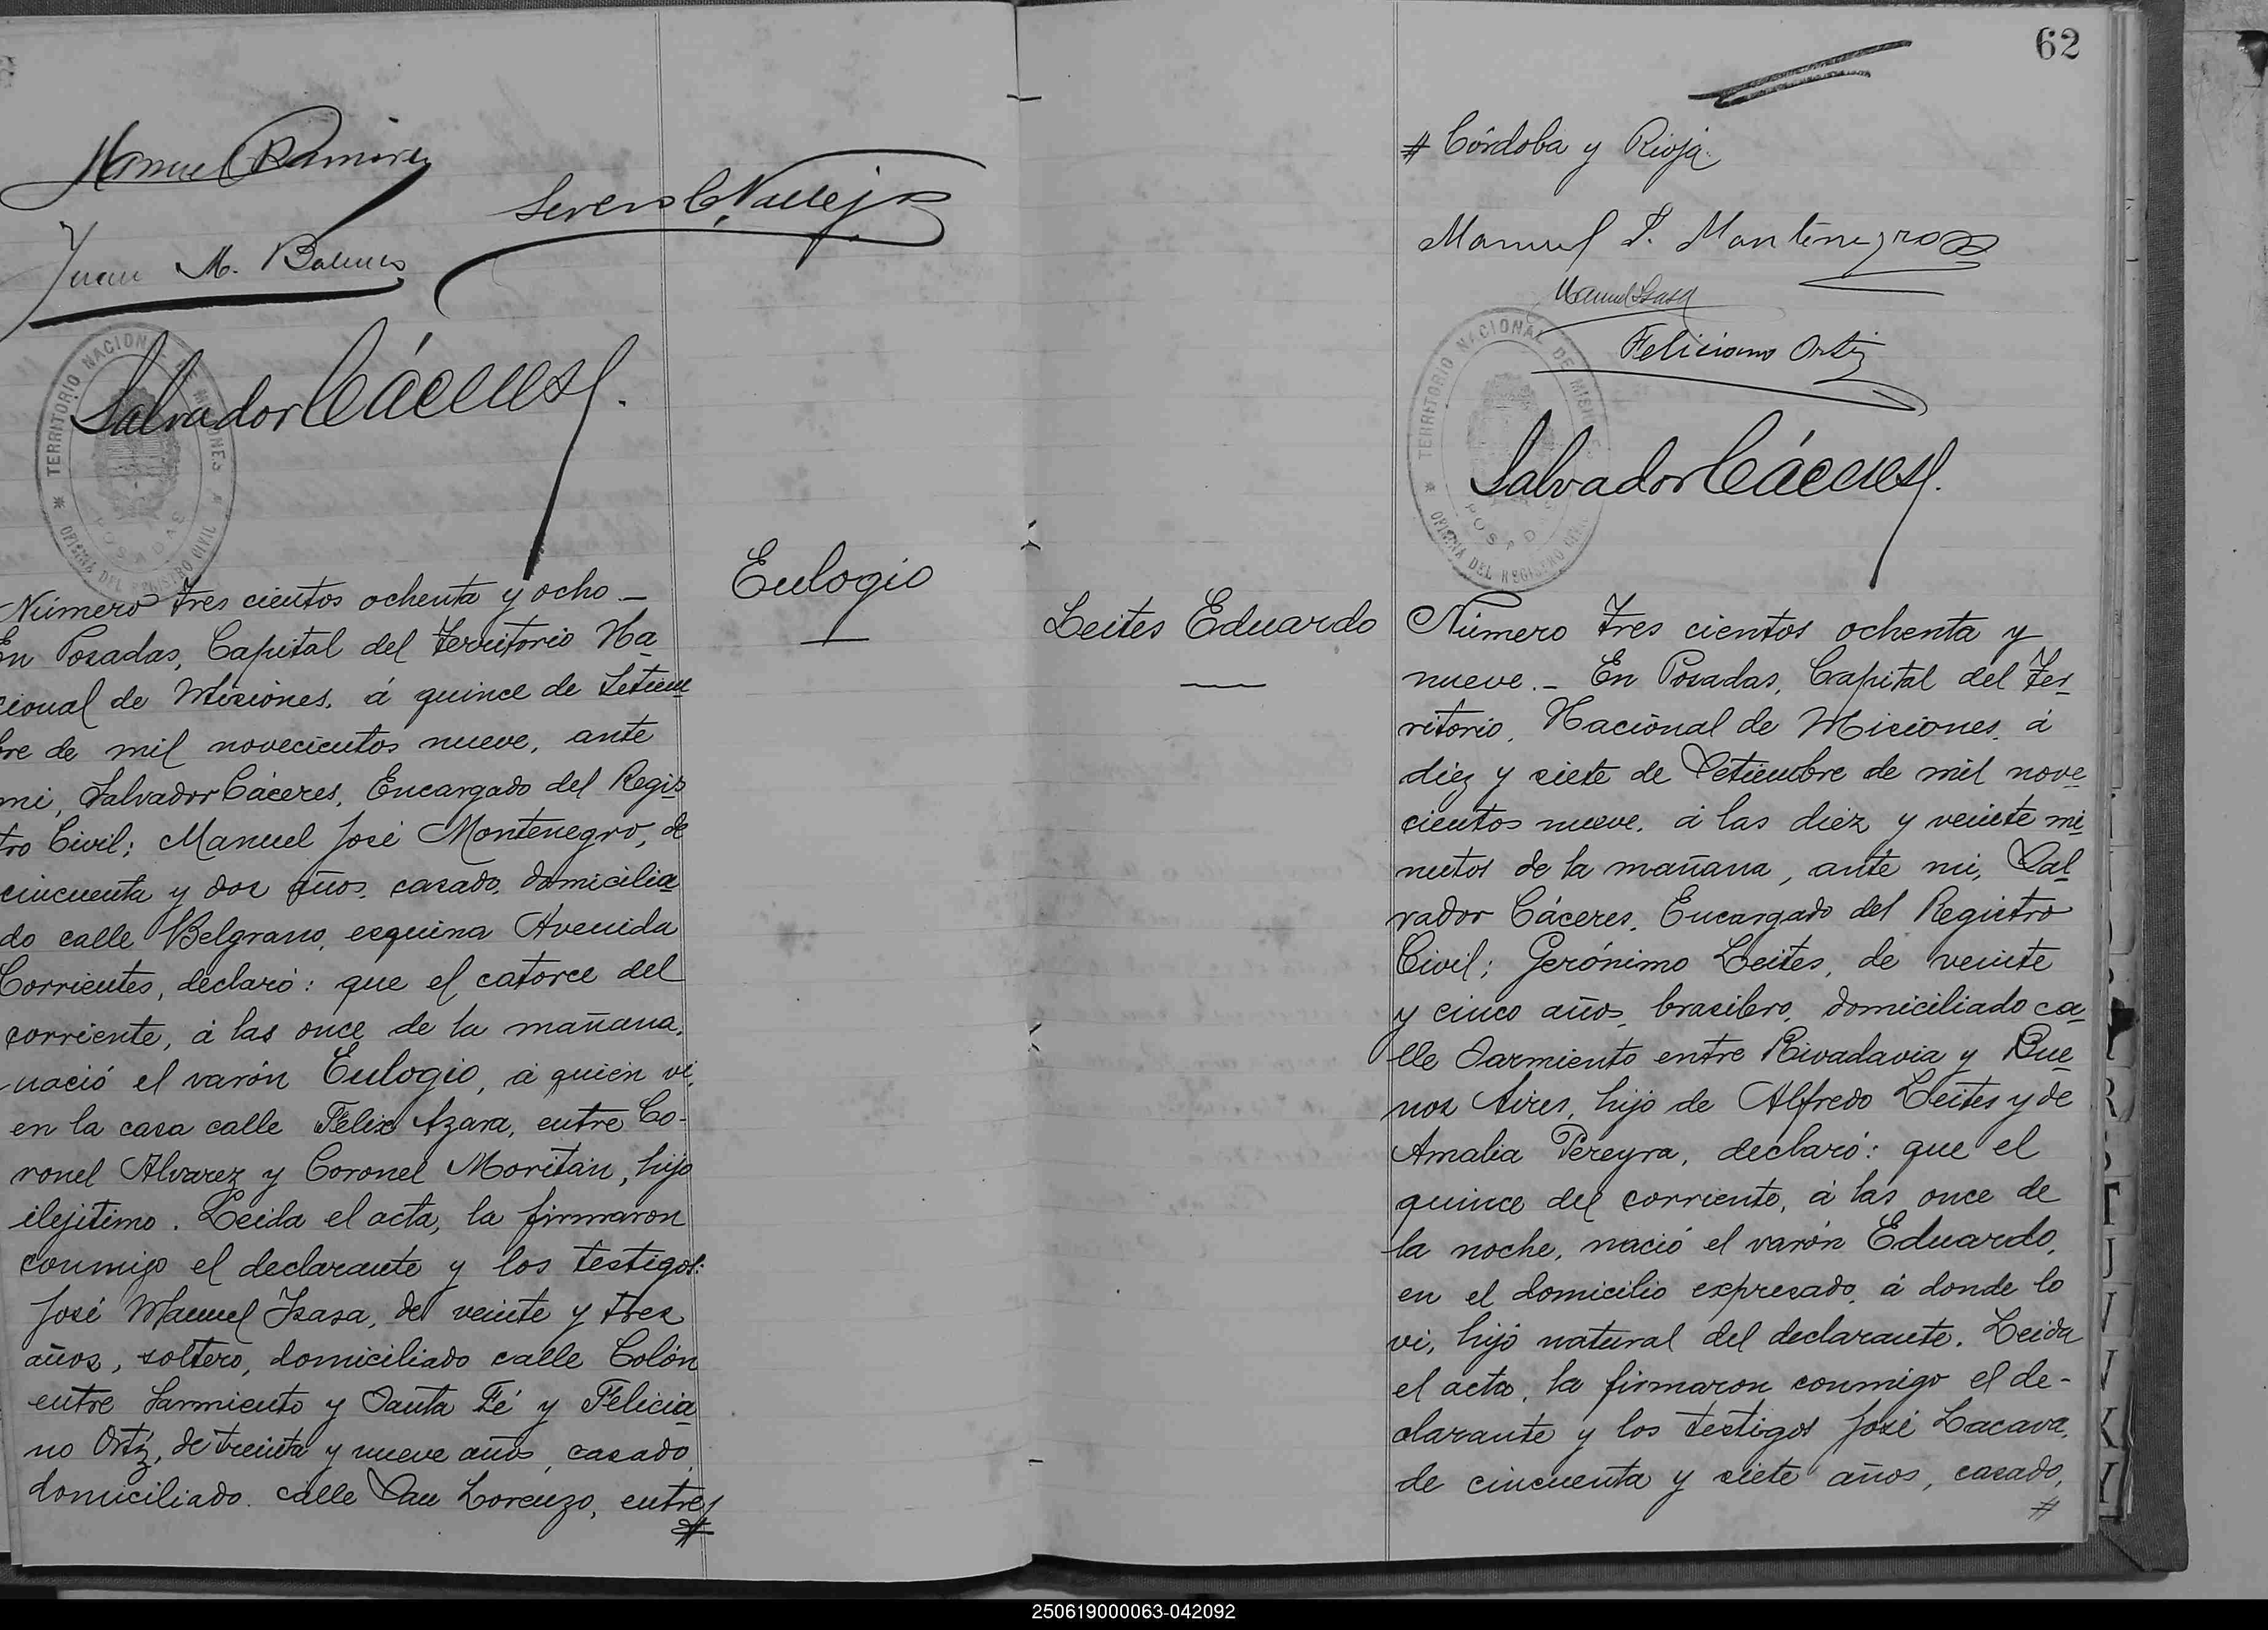 Manuel Ramirez
Severo C. Vallejos
Juan M.
TERRITORIO NACIONAL DE MISIONES
POSADAS
OFICINA DEL REGISTRO CIVIL
Salvador Cáceres
Número tres cientos ochenta y ocho _
En Posadas, Capital del Territorio Na
cional de Misiones, á quince de Setiem
bre de mil novecientos nueve, ante
mi, Salvador Cáceres, Encargado del Regis
tro Civil; Manuel José Montenegro, de
cincuenta y dos años, casado, domicilia
do calle Belgrano, esquina Avenida
Corrientes, declaró: que el catorce del
corriente, á las once de la mañana,
nació el varón Eulogio, á quien vi,
en la casa calle Félix Azara, entre Co-
ronel Alvarez y Coronel Moritán, hijo
ilejitimo. Leida el acta, la firmaron
conmigo el declarante y los testigos:
José Manuel Isasa, de veinte y tres
años, soltero, domiciliado calle Colón
entre Sarmiento y Santa Fé y Felicia
no Ortíz, de treinta y nueve años, casado,
domiciliado. calle San Lorenzo, entre
#
Eulogio
62
# Córdoba y Rioja.
Manuel J. Montenegro
Manuel Isasa
Feliciano Ortiz
TERRITORIO NACIONAL DE MISIONES
POSADAS
OFICINA DEL REGISTRO CIVIL
Salvador Cáceres
Leites Eduardo
Número tres cientos ochenta y
nueve._ En Posadas, Capital del Ter
ritorio, Nacional de Misiones, á
diez y siete de Setiembre de mil nove
cientos nueve, á las diez y veinte mi
nutos de la mañana, ante mi, Sal
vador Cáceres, Encargado del Registro
Civil; Gerónimo Leites, de veinte
y cinco años, brasilero, domiciliado ca
lle Sarmiento entre Rivadavia y Bue
nos Aires, hijo de Alfredo Leites y de
Amalia Pereyra, declaró: que el
quince del corriente, á las once de
la noche, nació el varón Eduardo,
en el domicilio expresado, á donde lo
vi, hijo natural del declarante. Leida
el acta, la firmaron conmigo el de-
clarante y los testigos José Lacava,
de cincuenta y siete años, casado,
#
R
S
T
J
V
K
250619000063-042092